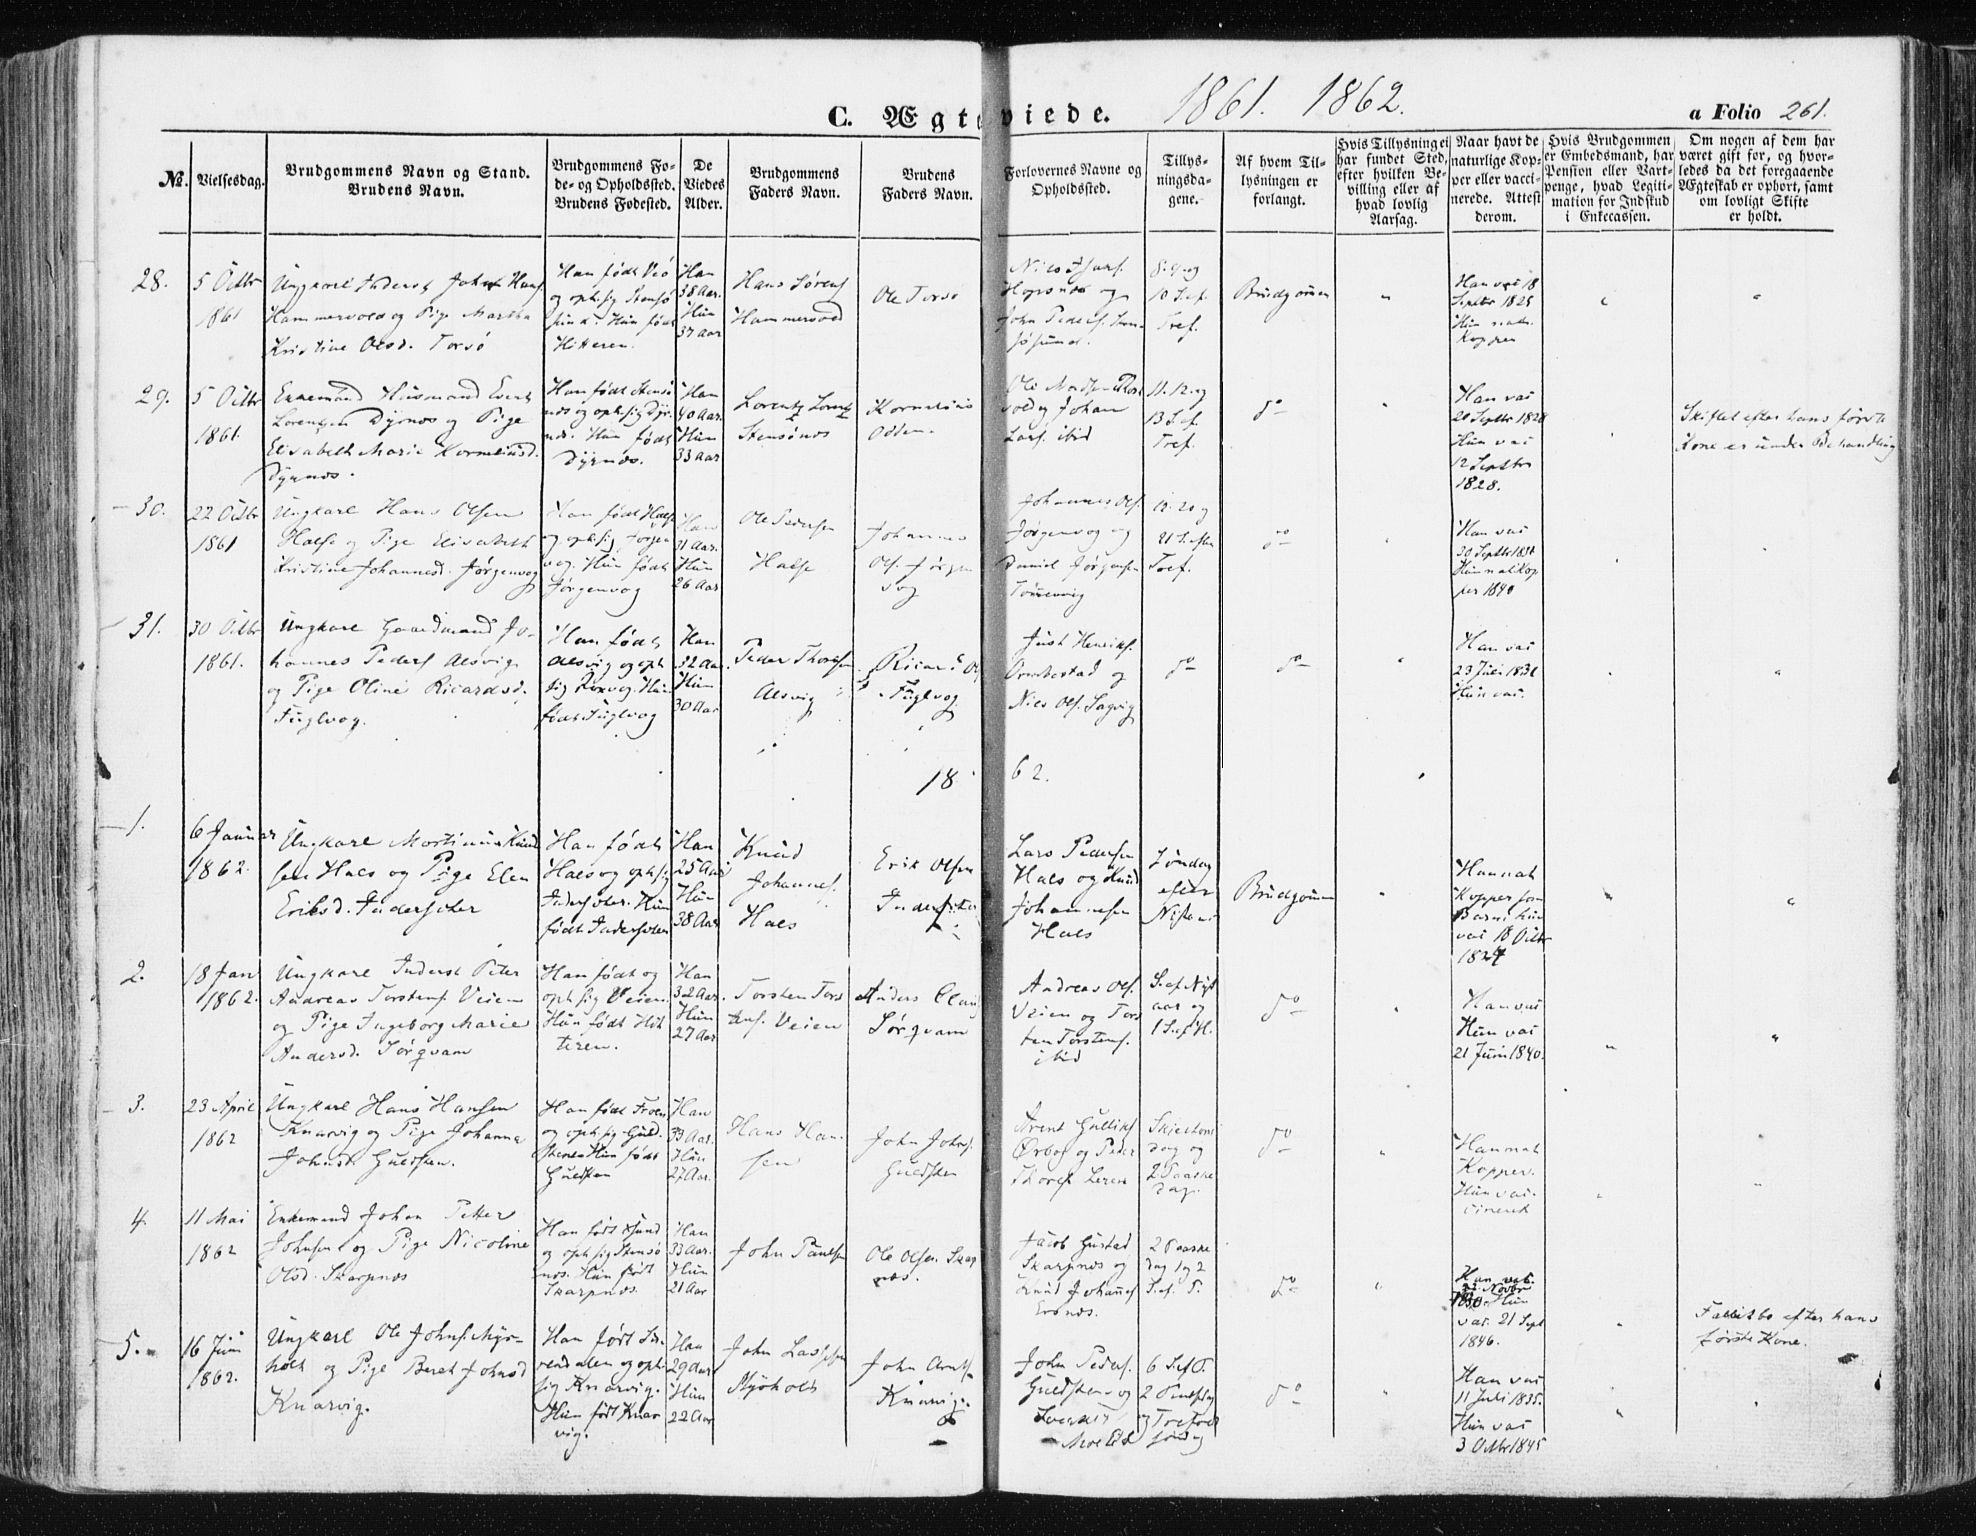 C. Ægteviede. 1861. 1862. a Folio 261.
№.
Vielsesdag.
Brudgommens Navn og Stand.
Brudens Navn.
Brudgommens Fø-
de- og Opholdssted.
Brudens Fødested.
De
Viedes
Alder.
Brudgommens
Faders Navn.
Brudens
Faders Navn.
Forlovernes Navne og
Opholdssted.
Tillys-
ningsda-
gene.
Af hvem Til-
lysningen er
forlangt.
Hvis Tillysning ei
har fundet Sted,
efter hvilken Be-
villing eller af
hvad lovlig
Aarsag.
Naar havt de
naturlige Kop-
per eller vacci-
nerede. Attest
derom.
Hvis Brudgommen
er Embedsmand, har
Pension eller Vart-
penge, hvad Legiti-
mation for Indskud
i Enkecassen.
Om nogen af dem har
været gift før, og hvor-
ledes da det foregaaende
Ægteskab er ophørt, samt
om lovligt Skifte
er holdt.
28.
5 Octbr
1861
Ungkarl Inderst John Hans.
Hammervold og Pige Martha
Kristine Olsd. Torsø
Han født Veø
og oph. sig Stensø
sund. Hun født
Hitteren.
Han
38 Aar.
Hun
37 Aar
Hans Sørens
Hammervold
Ole Torsø
Hopsnes og
John Peders. Sten-
søsund.
8. 9. og
10 S. ef.
Tref.
Brudgommen
Han vac 18
Septbr 1825
Hun nat.
Kopper
29.
5 Octbr
1861.
Enkemand Husmand Evert
Lorentzen Dyrnes og Pige
Elisabeth Marie Korneliusd.
Dyrnes.
Han født Stensø
nes og oph. sig Dyr-
nes. Hun født
Dyrnes.
Han
40 Aar.
Hun
33 Aar
Lorentz Lorentz
Stensønes
Kornelius
Odden.
vold og Johan
Lars. ibid
11. 12. og
13 S. ef.
Tref.
do
Han vac
20 Septbr 1828
Hun vac
12 Septbr
1828.
Skiftet efter hans første
Kone er under Behandling
30.
22 Octbr
1861
Ungkarl Hans Olsen
Halse og Pige Elisabeth
Kristine Johannesd. Jørgenvog
Han født Halse
og oph. sig Jørgen
vog. Hun født
Jørgenvog
Han
31 Aar.
Hun
26 Aar
Ole Pedersen
Halse
Johannes
Ols. Jørgen
vog
Johannes Ols.
Jørgenvog og
Daniel Jørgensen
19. 20 og
21 S. efter
Tref.
do
Han vac
30 Septbr 1831
Hun nat. Kop
per 1840
31.
30 Octbr
1861.
Ungkarl Gaardmand Jo-
hannes Peders Alsvig
og Pige Oline Ricardsd.
Fuglvog.
Han født
Alsvig og oph
sig Roxvog. Hun
født Fuglvog
Han
32 Aar.
Hun
30 Aar
Peder Thoresen
Alsvig
Ricard Ols
Fuglvog
Just Henriks.
Ormbostad og
Niels Ols. Sagvig
do
do
Han vac
23 Juli 1831
Hun vac.
18 62.
1.
6 Januar
1862.
Ungkarl Mortinus Knud
sen Hals og Pige Elen
Eriksd. Inderseter
Han født
Hals og oph. sig
Inderseter. Hun
født Inderseter
Han
25 Aar
Hun
38 Aar
Knud
Johannes.
Hals
Erik Olsen
Inderseter
Lars Pedersen
Hals og Knud
Johannesen
Hals
Søndag
efter
Brudgommen
Han nat
Kopper som
Barn. Hun
vac 18 Octbr
1824
2.
18 Jan
1862.
Ungkarl Inderst Peter
Andreas Torstens. Veien
og Pige Ingeborg Marie
Andersd. Sørqvam
Han født og
oph. sig Veien.
Hun født Hit
teren.
Han
32 Aar.
Hun
27 Aar
Torsten Tors
tens. Veien
Anders Claus
Sørqvam
Andreas Ols.
Veien og Tors
ten Torstens.
ibid
S. ef. Nyt
aar og
1 S. ef. H.
do
Han vac
Hun vac
21 Juni 1840.
3.
23 April
1862
Ungkarl Hans Hansen
Knarvig og Pige Johanna
Johnsd. Guldsten.
Han født Froen
og oph. sig Guld-
sten. Hun født
Guldsten
Han
33 Aar.
Hun
27 Aar.
Hans Han-
sen
John Johns.
Guldsten
Arent Gulliks.
Ørbog og Peder
Thores Leren
Skjertors
dag og
2 Paaske
dag.
do
Han nat
Kopper.
Hun vac-
cineret
4.
11 Mai
1862
Enkemand Johan Petter
Johnsen og Pige Nicoline
Olsd. Skarpnes
Han født Xsund
og oph. sig Stensø
nes. Hun født
Skarpnes.
Han
33 Aar.
Hun
21 Aar
John Paulsen
Ole Olsen Skarp
nes.
Jacob Gustad
Skarpnes og
Knud Johannes
2 Paaske
dag 1 og 2
S. ef. P.
do
Han vac.
22 Novbr
1830. Hun
vac. 21 Sept
1846.
Fallitbo efter hans
første Kone.
5.
16 Juni
1862.
Ungkarl Ole Johns. Myr-
holt og Pige Beret Johnsd
Knarvig.
Han født Su-
rendalen og oph.
sig Knarvig.
Hun født Knar
vig.
Han
29 Aar
Hun
22 Aar
John Lassesen
Myrholt
John Arnts.
Knarvig.
John Peders.
Guldsten og
6 S. ef P.
2 Pintsdag
og Trefold
sønd
do
Han vac
11 Juli 1835.
Hun vac
3 Octbr 1845